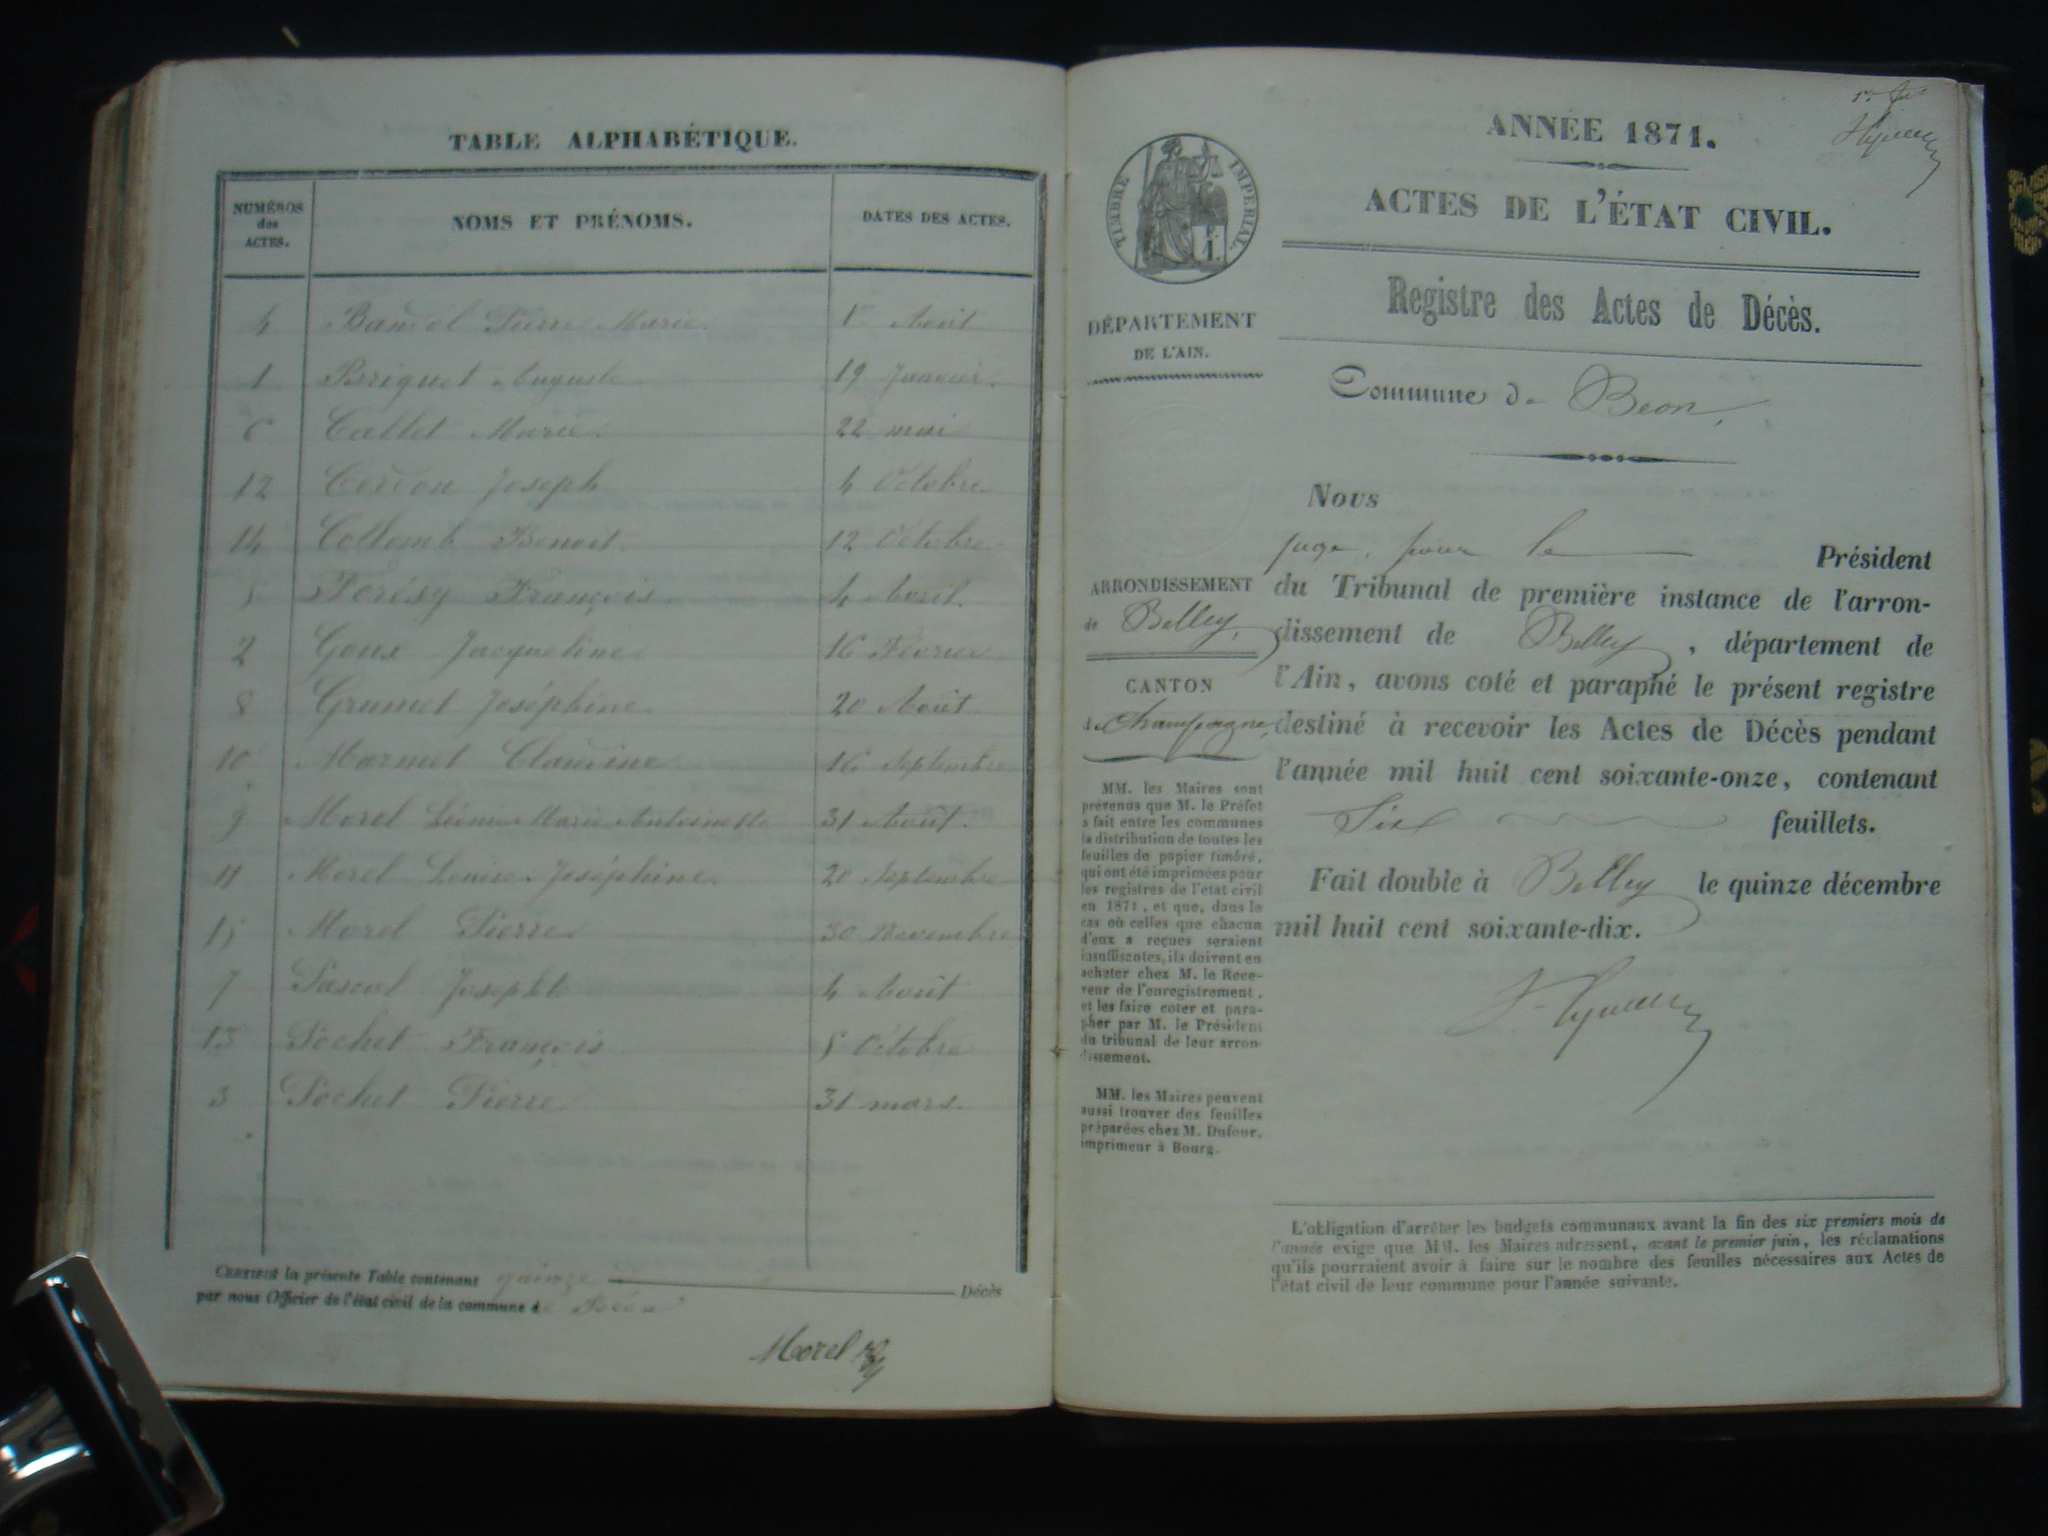 TABLE ALPHABÉTIQUE.
NUMÉROS des ACTES. NOMS ET PRÉNOMS. DATES DES ACTES.
4 Pierre Marie 1er Août
1 Briquet Auguste 19 Janvier.
6 Callet Marie 22 mai
12 Cerdon Joseph 4 Octobre
14 Collomb Benoit 12 Octobre
5 François 4 Avril.
2 Goux Jacqueline 16 Février
8 Grumet Joséphine 20 Août
10 Marmet Claudine 16 Septembre
9 Morel Marie Antoinette 31 Août.
11 Morel Louise Joséphine 20 Septembre
15 Morel Pierre 30 Novembre
7 Pascal Joseph 4 Août
13 Pochet François 5 Octobre
3 Pochet Pierre 31 mars.
CERTIFIÉ la présente Table contenant quinze Décès
par nous Officier de l'état civil de la commune de Béon
Morel
ANNÉE 1871.
ACTES DE L'ÉTAT CIVIL.
TIMBRE IMPÉRIAL.
1 F.
Registre des Actes de Décès.
DÉPARTEMENT
DE L'AIN.
Commune de Beon,
ARRONDISSEMENT
de Belley,
CANTON
de Champagne,
MM. les Maires sont
prévenus que M. le Préfet
a fait entre les communes
la distribution de toutes les
feuilles de papier timbré,
qui ont été imprimées pour
les registres de l'état civil
en 1871, et que, dans le
cas où celles que chacun
d'eux a reçues seraient
insuffisantes, ils doivent en
acheter chez M. le Rece-
veur de l'enregistrement,
et les faire coter et para-
pher par M. le Président
du tribunal de leur arron-
dissement.
MM. les Maires peuvent
aussi trouver des feuilles
préparées chez M. Dufour,
imprimeur à Bourg.
Nous
juge, pour le Président
du Tribunal de première instance de l'arron-
dissement de Belley, département de
l'Ain, avons coté et paraphé le présent registre
destiné à recevoir les Actes de Décès pendant
l'année mil huit cent soixante-onze, contenant
Six feuillets.
Fait double à Belley le quinze décembre
mil huit cent soixante-dix.
L'obligation d'arrêter les budgets communaux avant la fin des six premiers mois de
l'année exige que MM. les Maires adressent, avant le premier juin, les réclamations
qu'ils pourraient avoir à faire sur le nombre des feuilles nécessaires aux Actes de
l'état civil de leur commune pour l'année suivante.